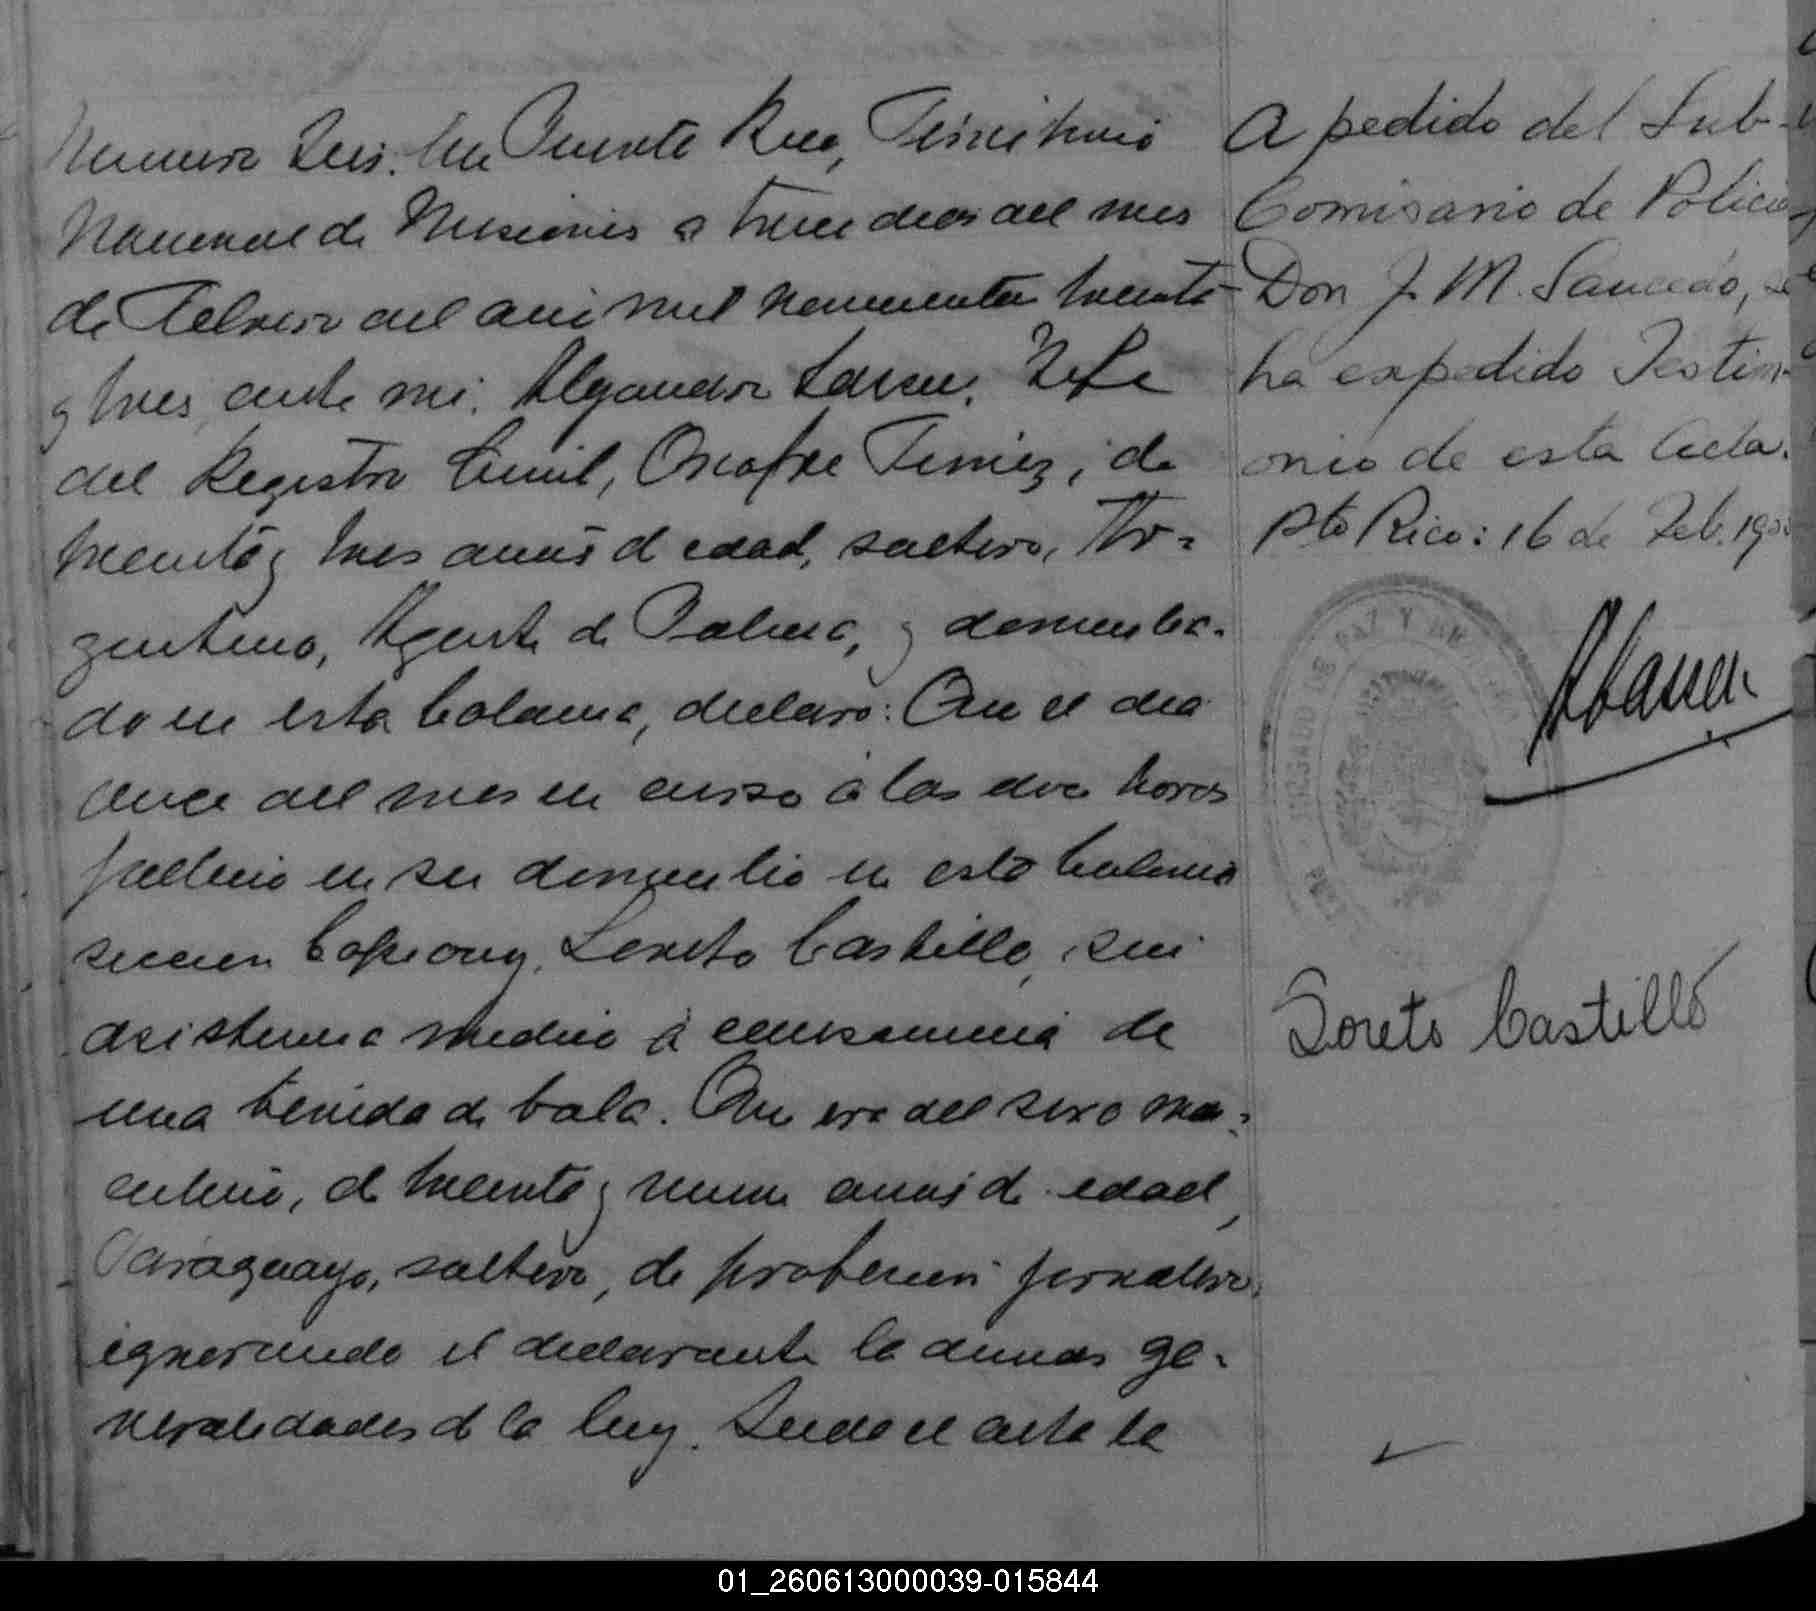 Numero Seis. En Puerto Rico, Territorio
Nacional de Misiones a trece dias del mes
de Febrero del año mil novecientos treinta
y tres, ante mi, Alejandro Lassen, Jefe
del Registro Civil, Onofre, de
treinta y tres años de edad, soltero, Ar=
gentino, Agente de Policia, y domicilia-
do en esta Colonia, declaro: Que el dia
doce del mes en curso á las doce horas
fallecio en su domicilio en esta Colonia
seccion Capiovy, Loreto Castillo, sin
asistencia medica á consecuencia de
una herida de bala. Que era del sexo mas=
culino, de treinta y nueve años de edad,
Paraguayo, soltero, de profesion jornalero,
ignorando el declarante la demas ge-
neralidades de la ley. Leida el acta la
A pedido del Sub-
Comisario de Policia
Don J. M. Saucedo, se
ha expedido Testim-
onio de esta Acta.
Pto Rico: 16 de Feb. 193
ALassen
JUZGADO DE PAZ Y
Loreto Castillo
01_260613000039-015844